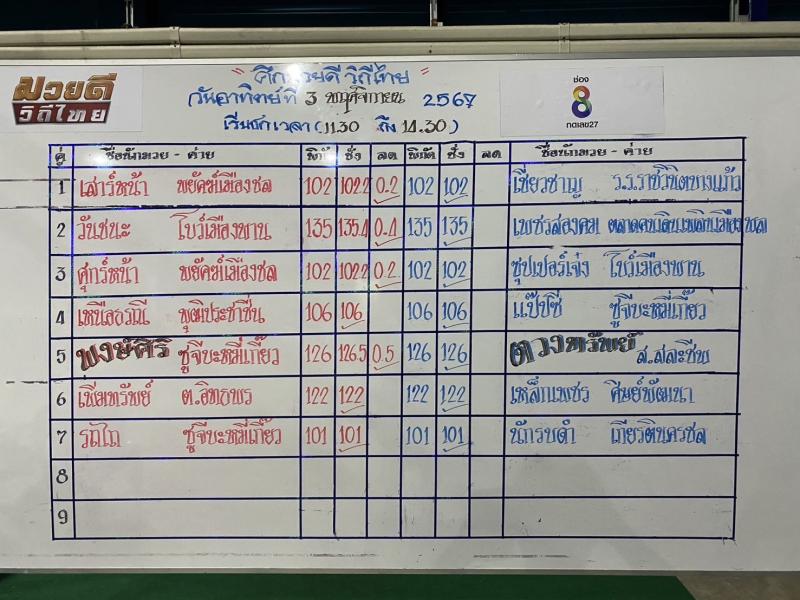 มวยดี
วิถีไทย
ช่อง
8
กดเลข27
" ศึกมวยดี วิถีไทย "
วันอาทิตย์ที่ 3 พฤศจิกายน 2567
เริ่มชกเวลา (11.30 ถึง 14.30)
คู่ ชื่อนักมวย - ค่าย พิกัด ชั่ง ลด พิกัด ชั่ง ลด ชื่อนักมวย - ค่าย
1 เสาร์หน้า พยัคฆ์เมืองชล 102 102.2 0.2 102 102 เชี่ยวชาญ ร.ร.ราชวินิตบางแก้ว
2 วันชนะ โบว์เมืองพาน 135 135.4 0.4 135 135 เพชรสองคม
3 ศุกร์หน้า พยัคฆ์เมืองชล 102 102.2 0.2 102 102 ซุปเปอร์เจ๋ง โบว์เมืองพาน
4 เหนือธรณี พุฒิประชาชื่น 106 106 106 106 แป๊ปซี่ ชูจีบะหมี่เกี๊ยว
5 พงษ์ศิริ ชูจีบะหมี่เกี๊ยว 126 126.5 0.5 126 126 ดวงทรัพย์ ส.สละชีพ
6 เพิ่มทรัพย์ ต.อิทธพร 122 122 122 122 เหล็กเพชร ศิษย์พัฒนา
7 ชูจีบะหมี่เกี๊ยว 101 101 101 101 นักรบดำ เกียรตินครชล
8
9